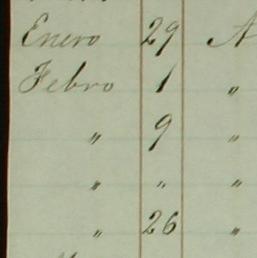 Enero 29 A
Febro 1 "
" 9 "
" " "
" 26 "